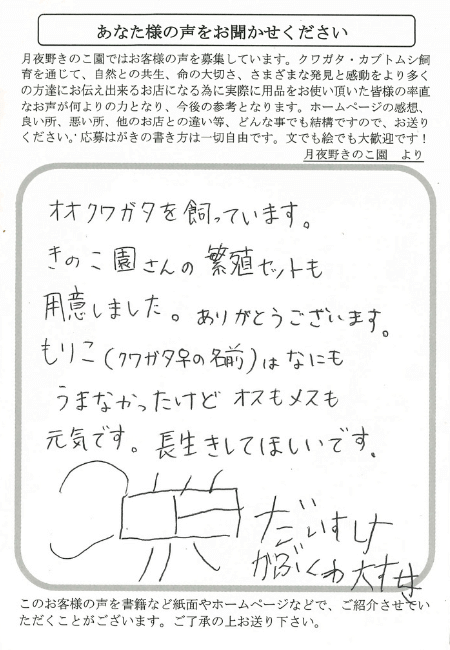 あなた様の声をお聞かせください
月夜野きのこ園ではお客様の声を募集しています。クワガタ・カブトムシ飼
育を通じて、自然との共生、命の大切さ、さまざまな発見と感動をより多く
の方達にお伝え出来るお店になる為に実際に用品をお使い頂いた皆様の率直
なお声が何よりの力となり、今後の参考となります。ホームページの感想、
良い所、悪い所、他のお店との違い等、どんな事でも結構ですので、お送り
ください。応募はがきの書き方は一切自由です。文でも絵でも大歓迎です！
月夜野きのこ園　より
オオクワガタを飼っています。
きのこ園さんの繁殖セットも
用意しました。ありがとうございます。
もりこ（クワガタ♀の名前）はなにも
うまなかったけど オスもメスも
元気です。長生きしてほしいです。
だいすけ
かぶくわ大すき
このお客様の声を書籍など紙面やホームページなどで、ご紹介させてい
ただくことがございます。ご了承の上お送り下さい。